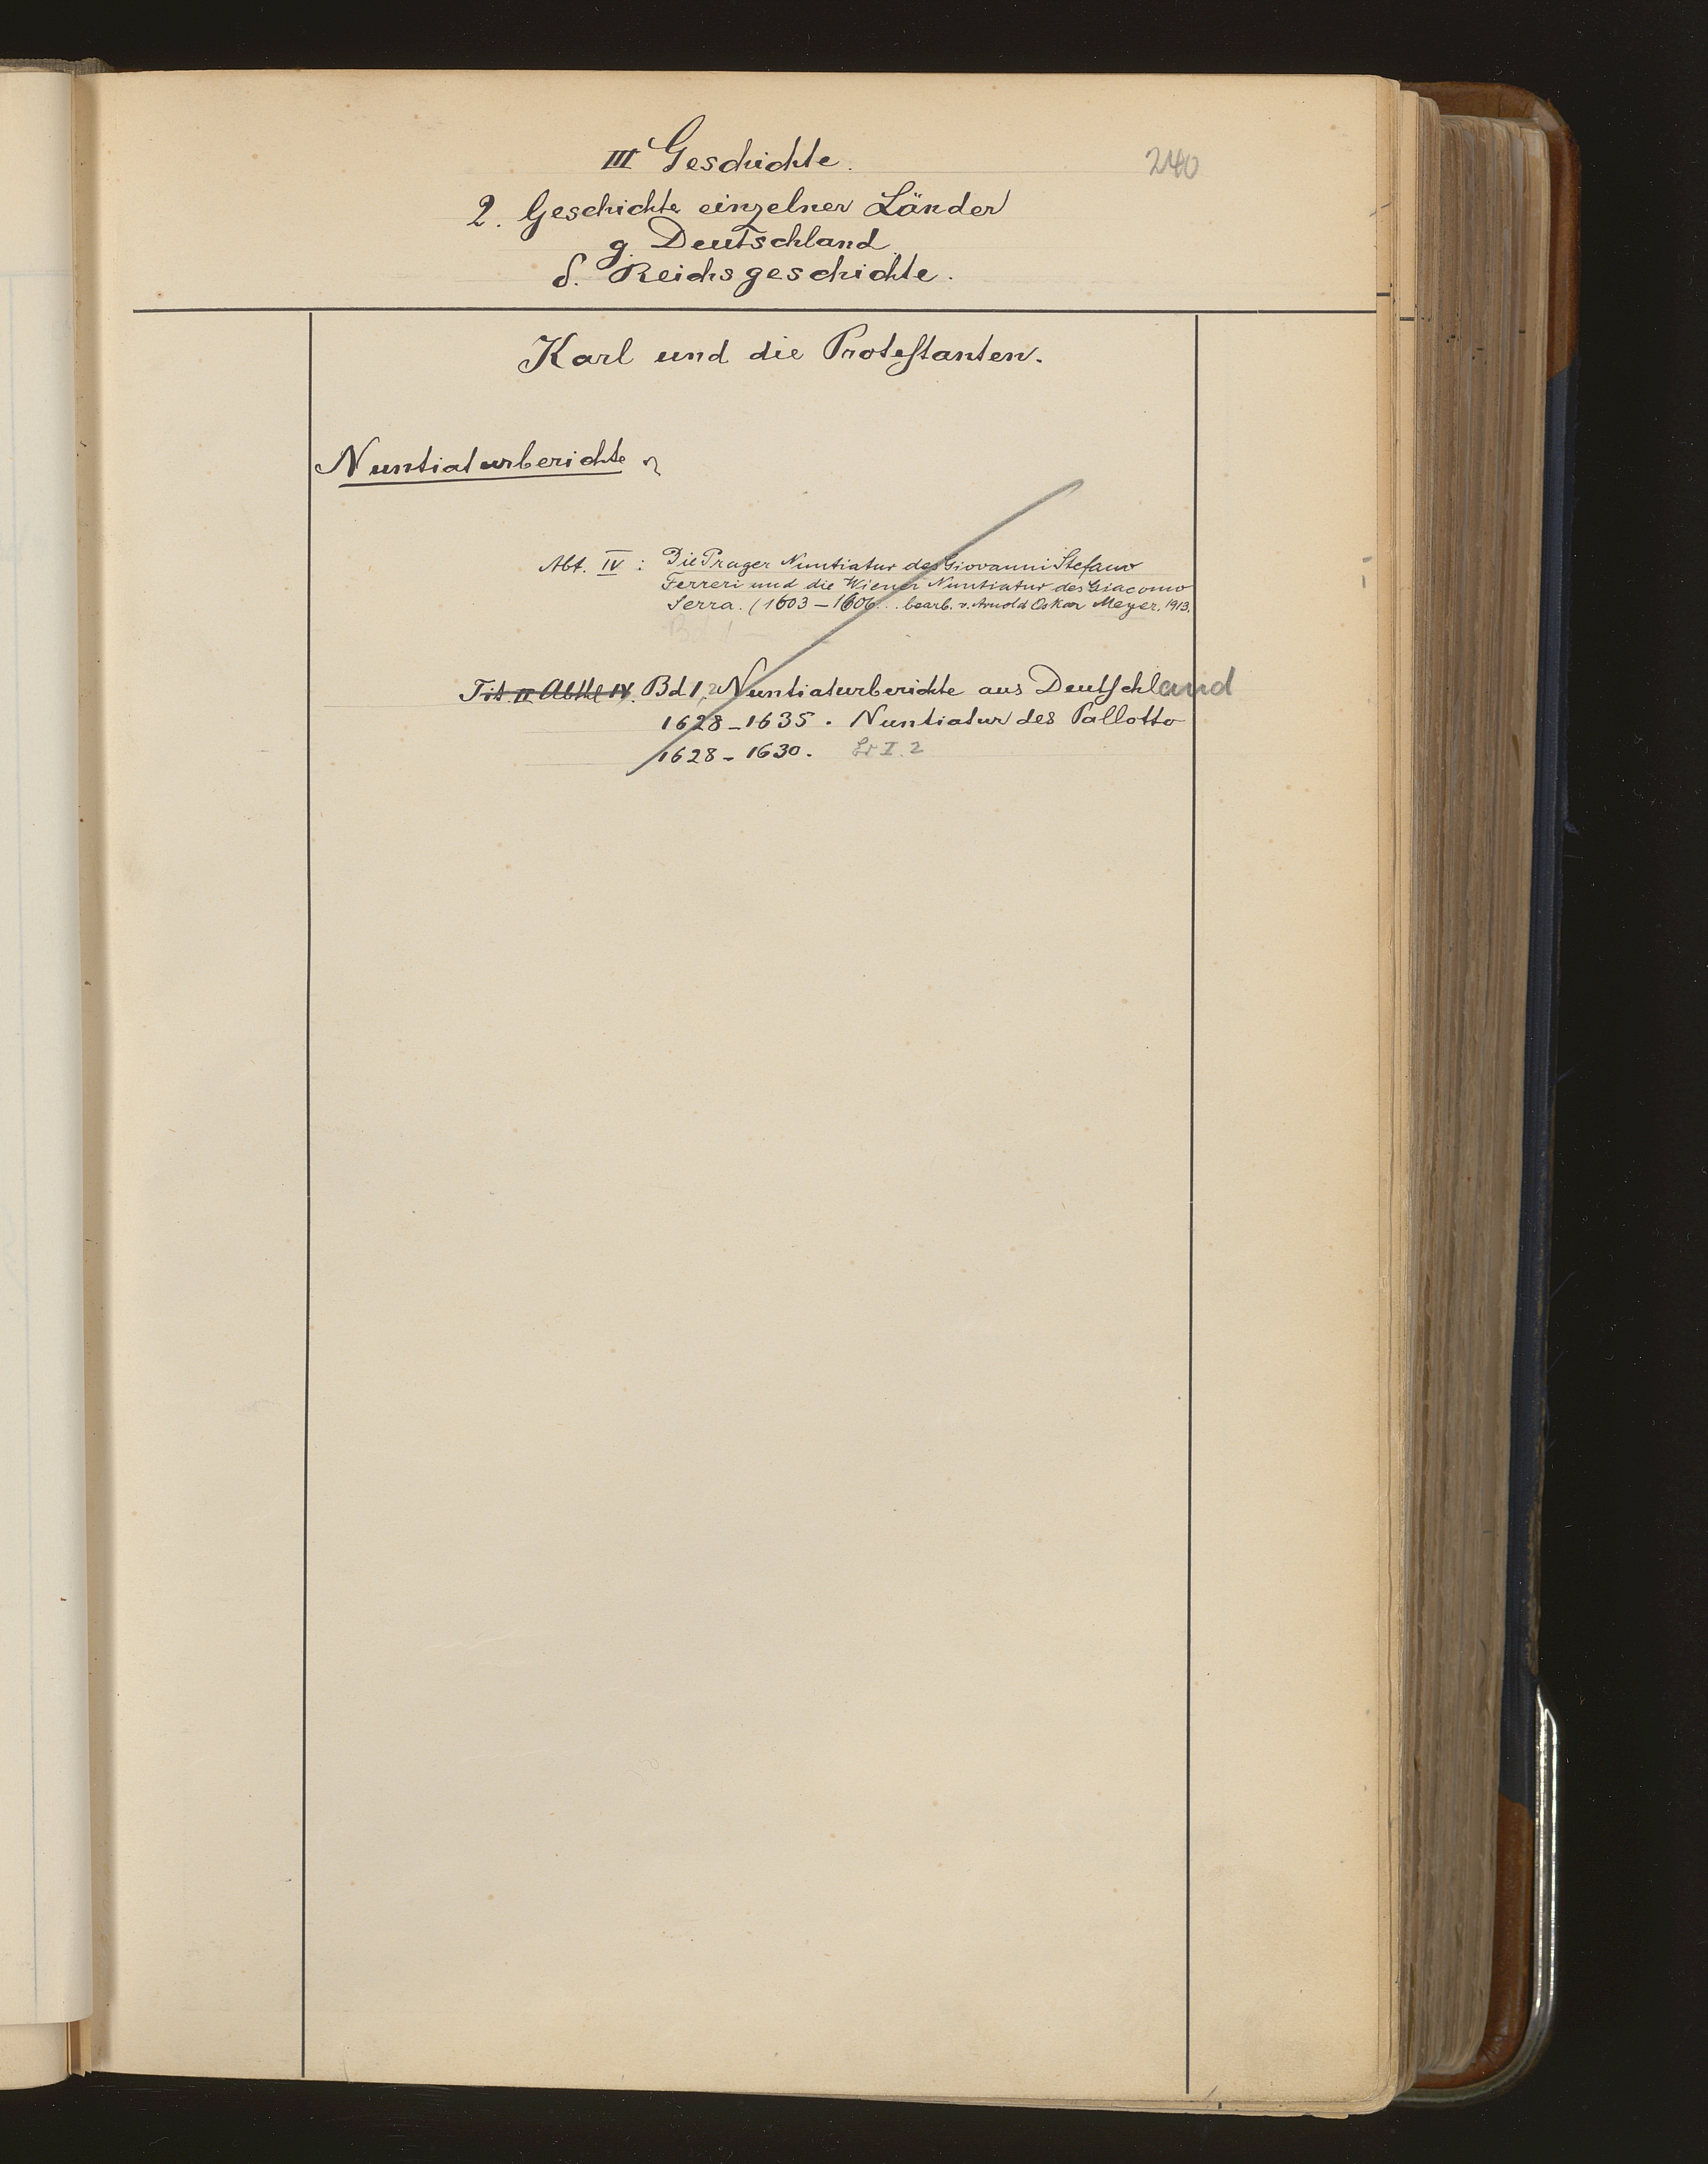 III Geschichte.
240
2. Geschichte einzelner Länder
g. Deutschland
δ. Reichsgeschichte.
Karl und die Protestanten.
Nuntiaturberichte
Abt. IV: Die Prager Nuntiatur des Giovanni Stefano
Ferreri und die Wiener Nuntiatur des Giacomo
Serra. (1603–1606... bearb. v. Arnold Oskar Meyer. 1913.
Bd 1 –
Tit. II Abthl IV. Bd 1, 2 Nuntiaturberichte aus Deutschland
1628–1635. Nuntiatur des Pallotto
1628–1630. I. 2